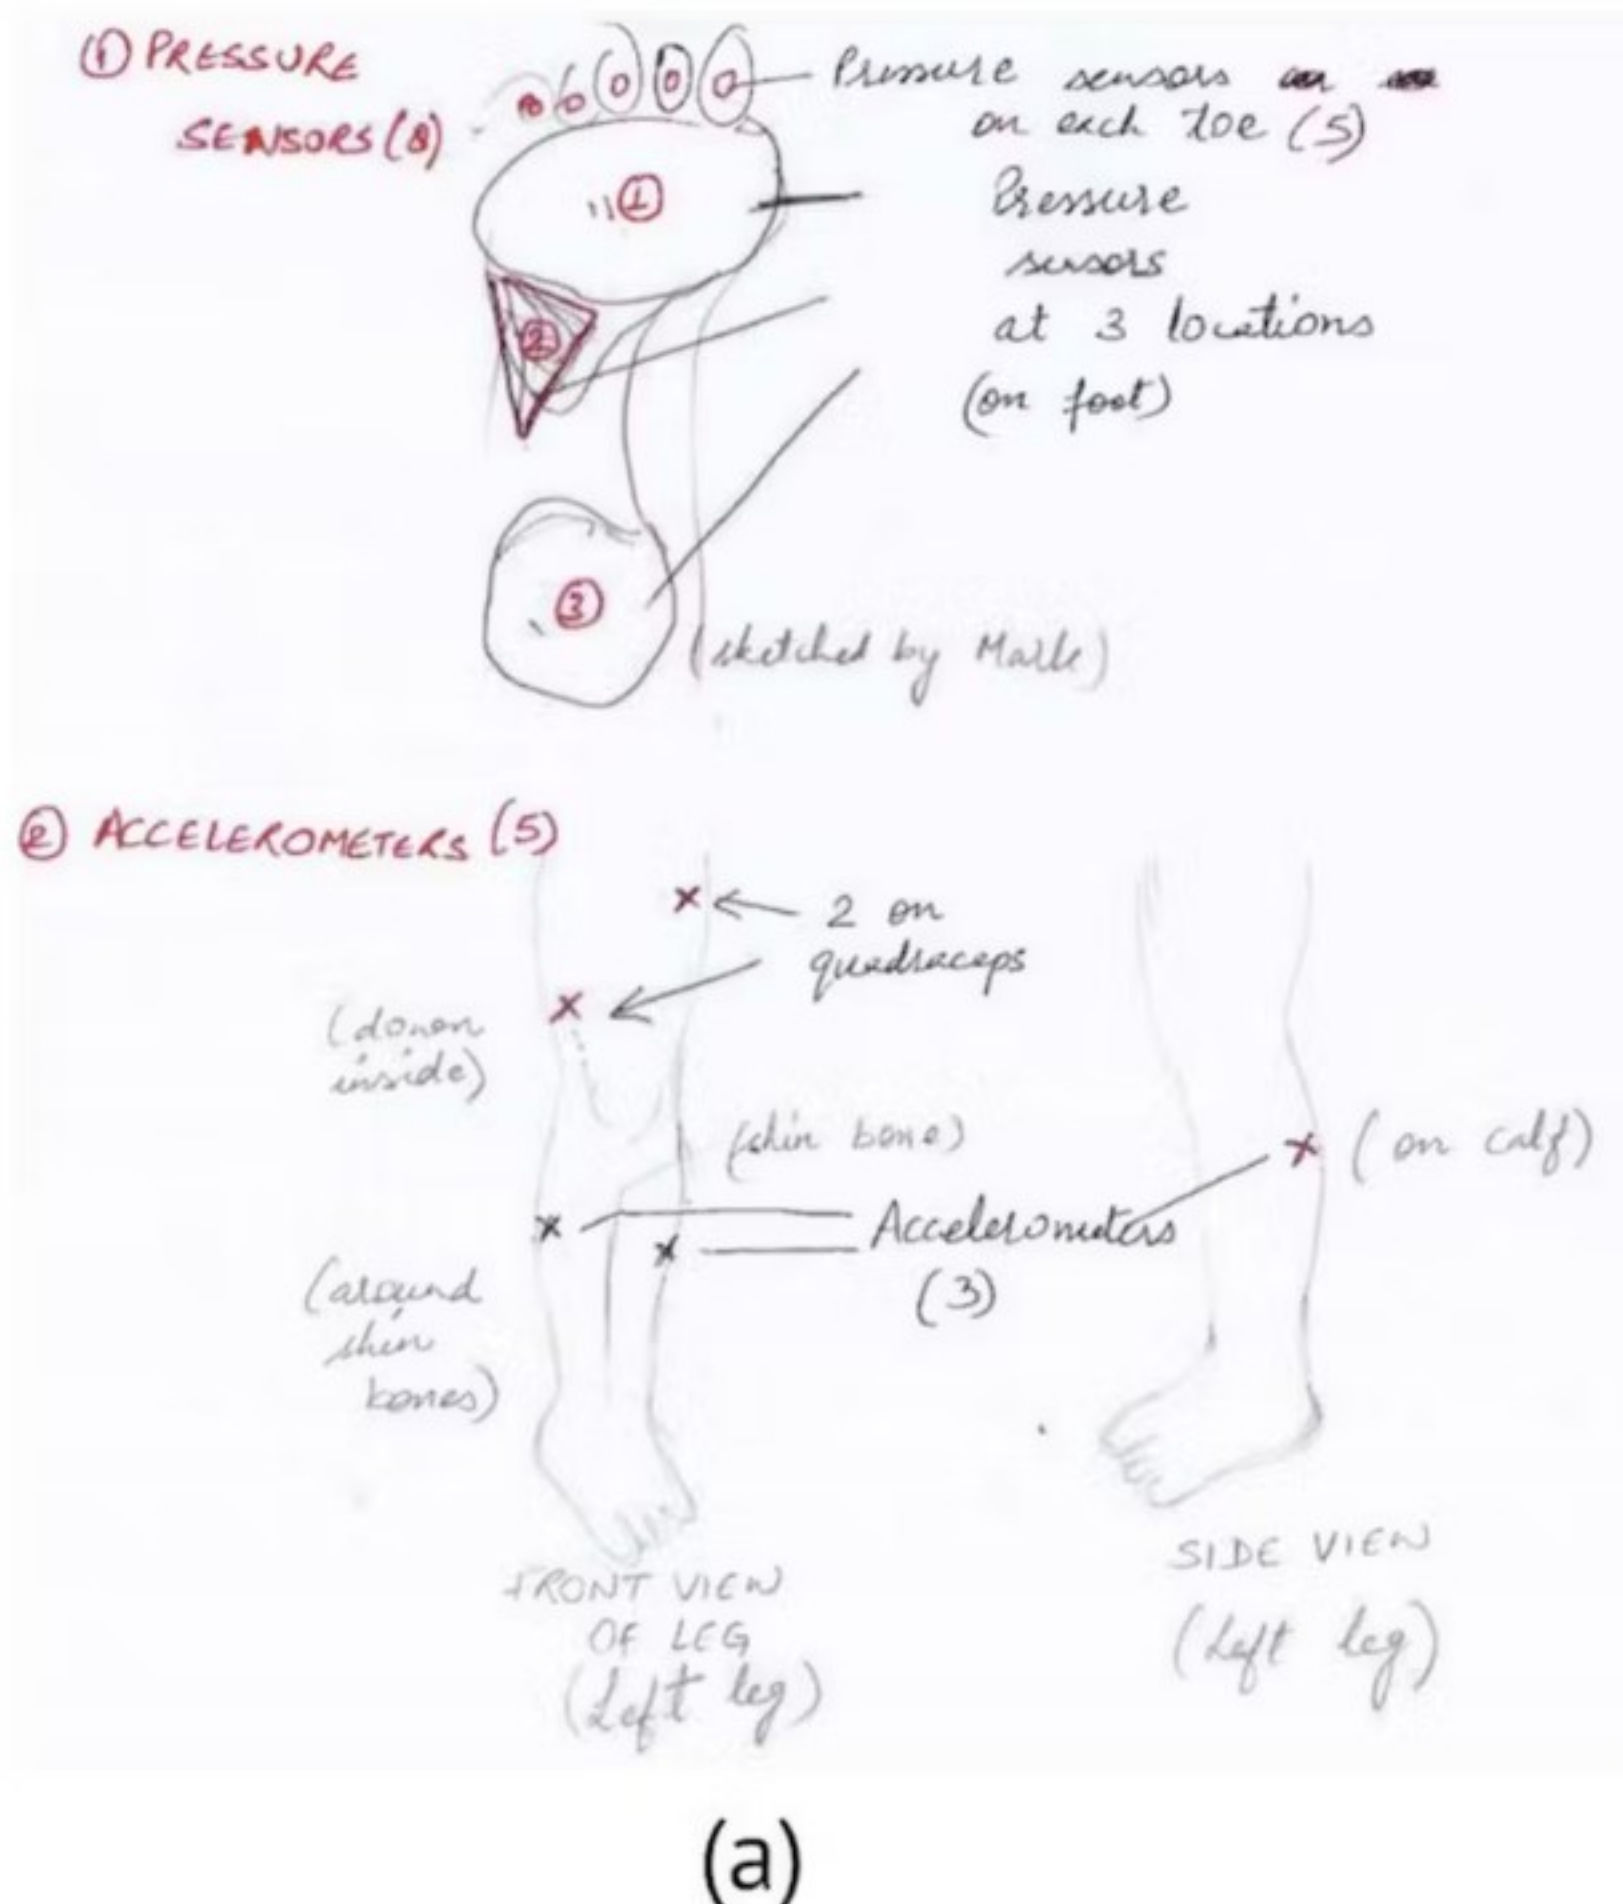 ① PRESSURE
SENSORS (8)
Pressure sensors
on each toe (5)
①
Pressure
sensors
at 3 locations
(on foot)
②
③
(sketched by Mark)
② ACCELEROMETERS (5)
2 on
quadraceps
(down
inside)
(shin bone)
(on calf)
Accelerometers
(3)
(around
shin
bones)
FRONT VIEW
OF LEG
(Left leg)
SIDE VIEW
(Left leg)
(a)